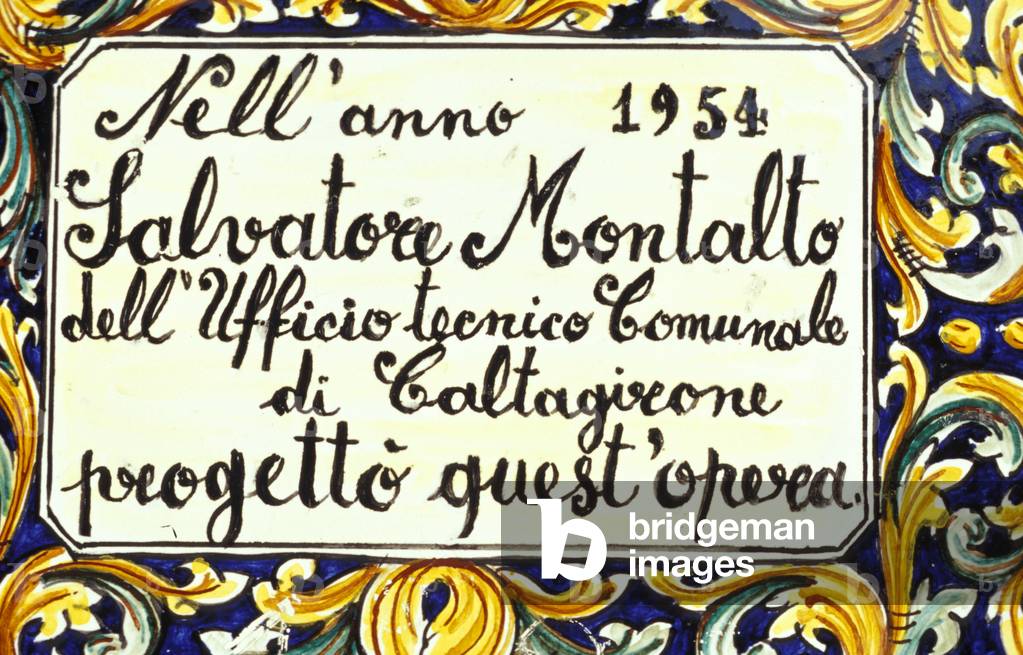 Nell'anno 1954
Salvatore Montalto
dell'Ufficio tecnico Comunale
di Caltagirone
progettò quest'opera.
b bridgeman
images